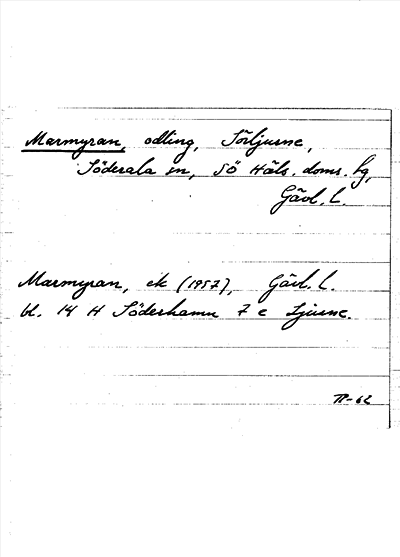 Marmyran, odling, Sörljusne,
Söderala sn, SÖ Häls. doms. fg,
Gävl. l.
Marmyran, ek (1957), Gävl. l.
bl. 14 H Söderhamn 7 e Ljusne.
TP-62